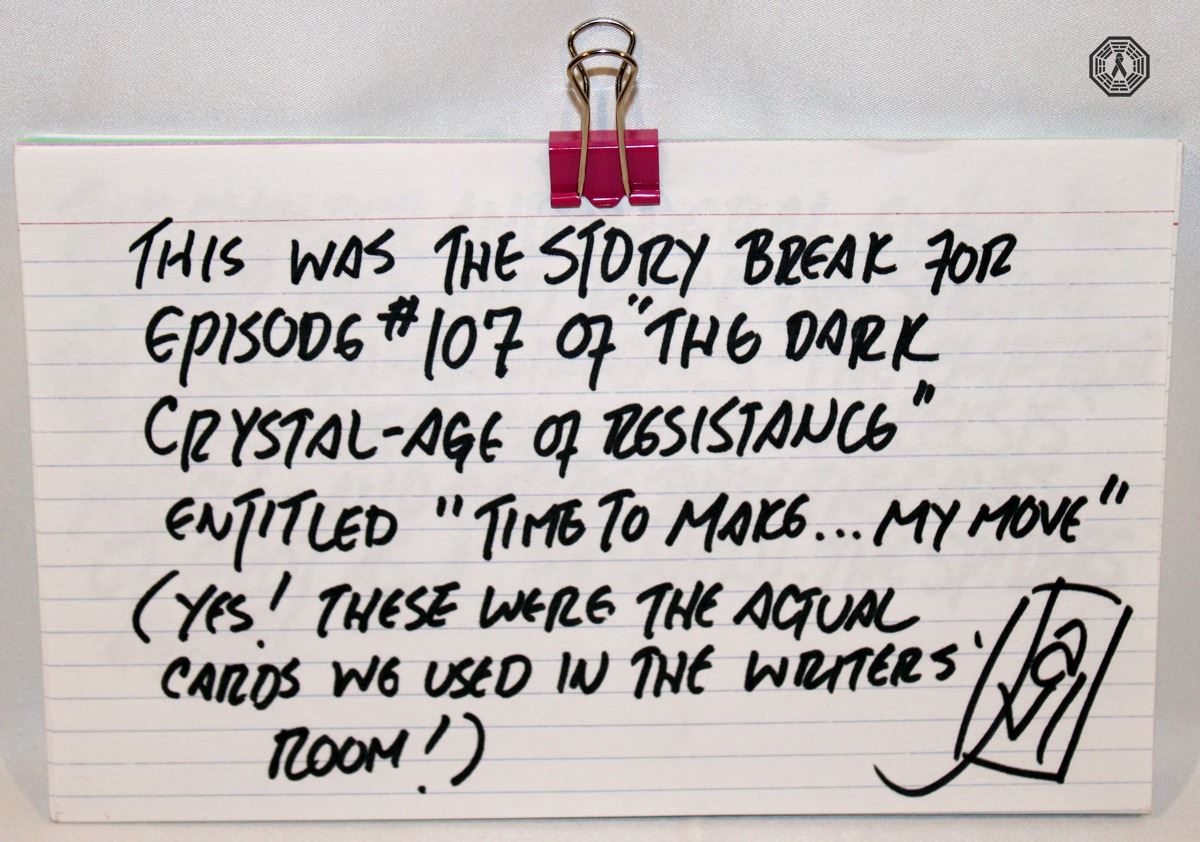 THIS WAS THE STORY BREAK FOR
EPISODE #107 OF "THE DARK
CRYSTAL-AGE OF RESISTANCE"
ENTITLED "TIME TO MAKE... MY MOVE"
(YES! THESE WERE THE ACTUAL
CARDS WE USED IN THE WRITERS'
ROOM!)